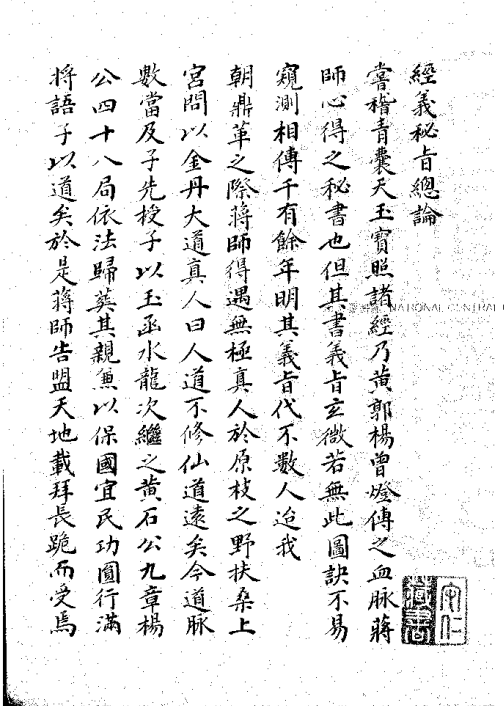 經義秘旨總論
嘗稽青囊天玉寶照諸經乃黃郭楊曾燈傳之血脈蔣
師心得之秘書也但其書義旨玄微若無此圖訣不易
窺測相傳千有餘年明其義旨代不數人迨我
朝鼎革之際蔣師得遇無極真人於原枝之野扶桑上
宮問以金丹大道真人曰人道不修仙道遠矣今道脈
數當及子先授子以玉函水龍次繼之黃石公九章楊
公四十八局依法歸葬其親兼以保國宜民功圓行滿
將語子以道矣於是蔣師告盟天地載拜長跪而受焉
NATIONAL CENTRAL
藏書